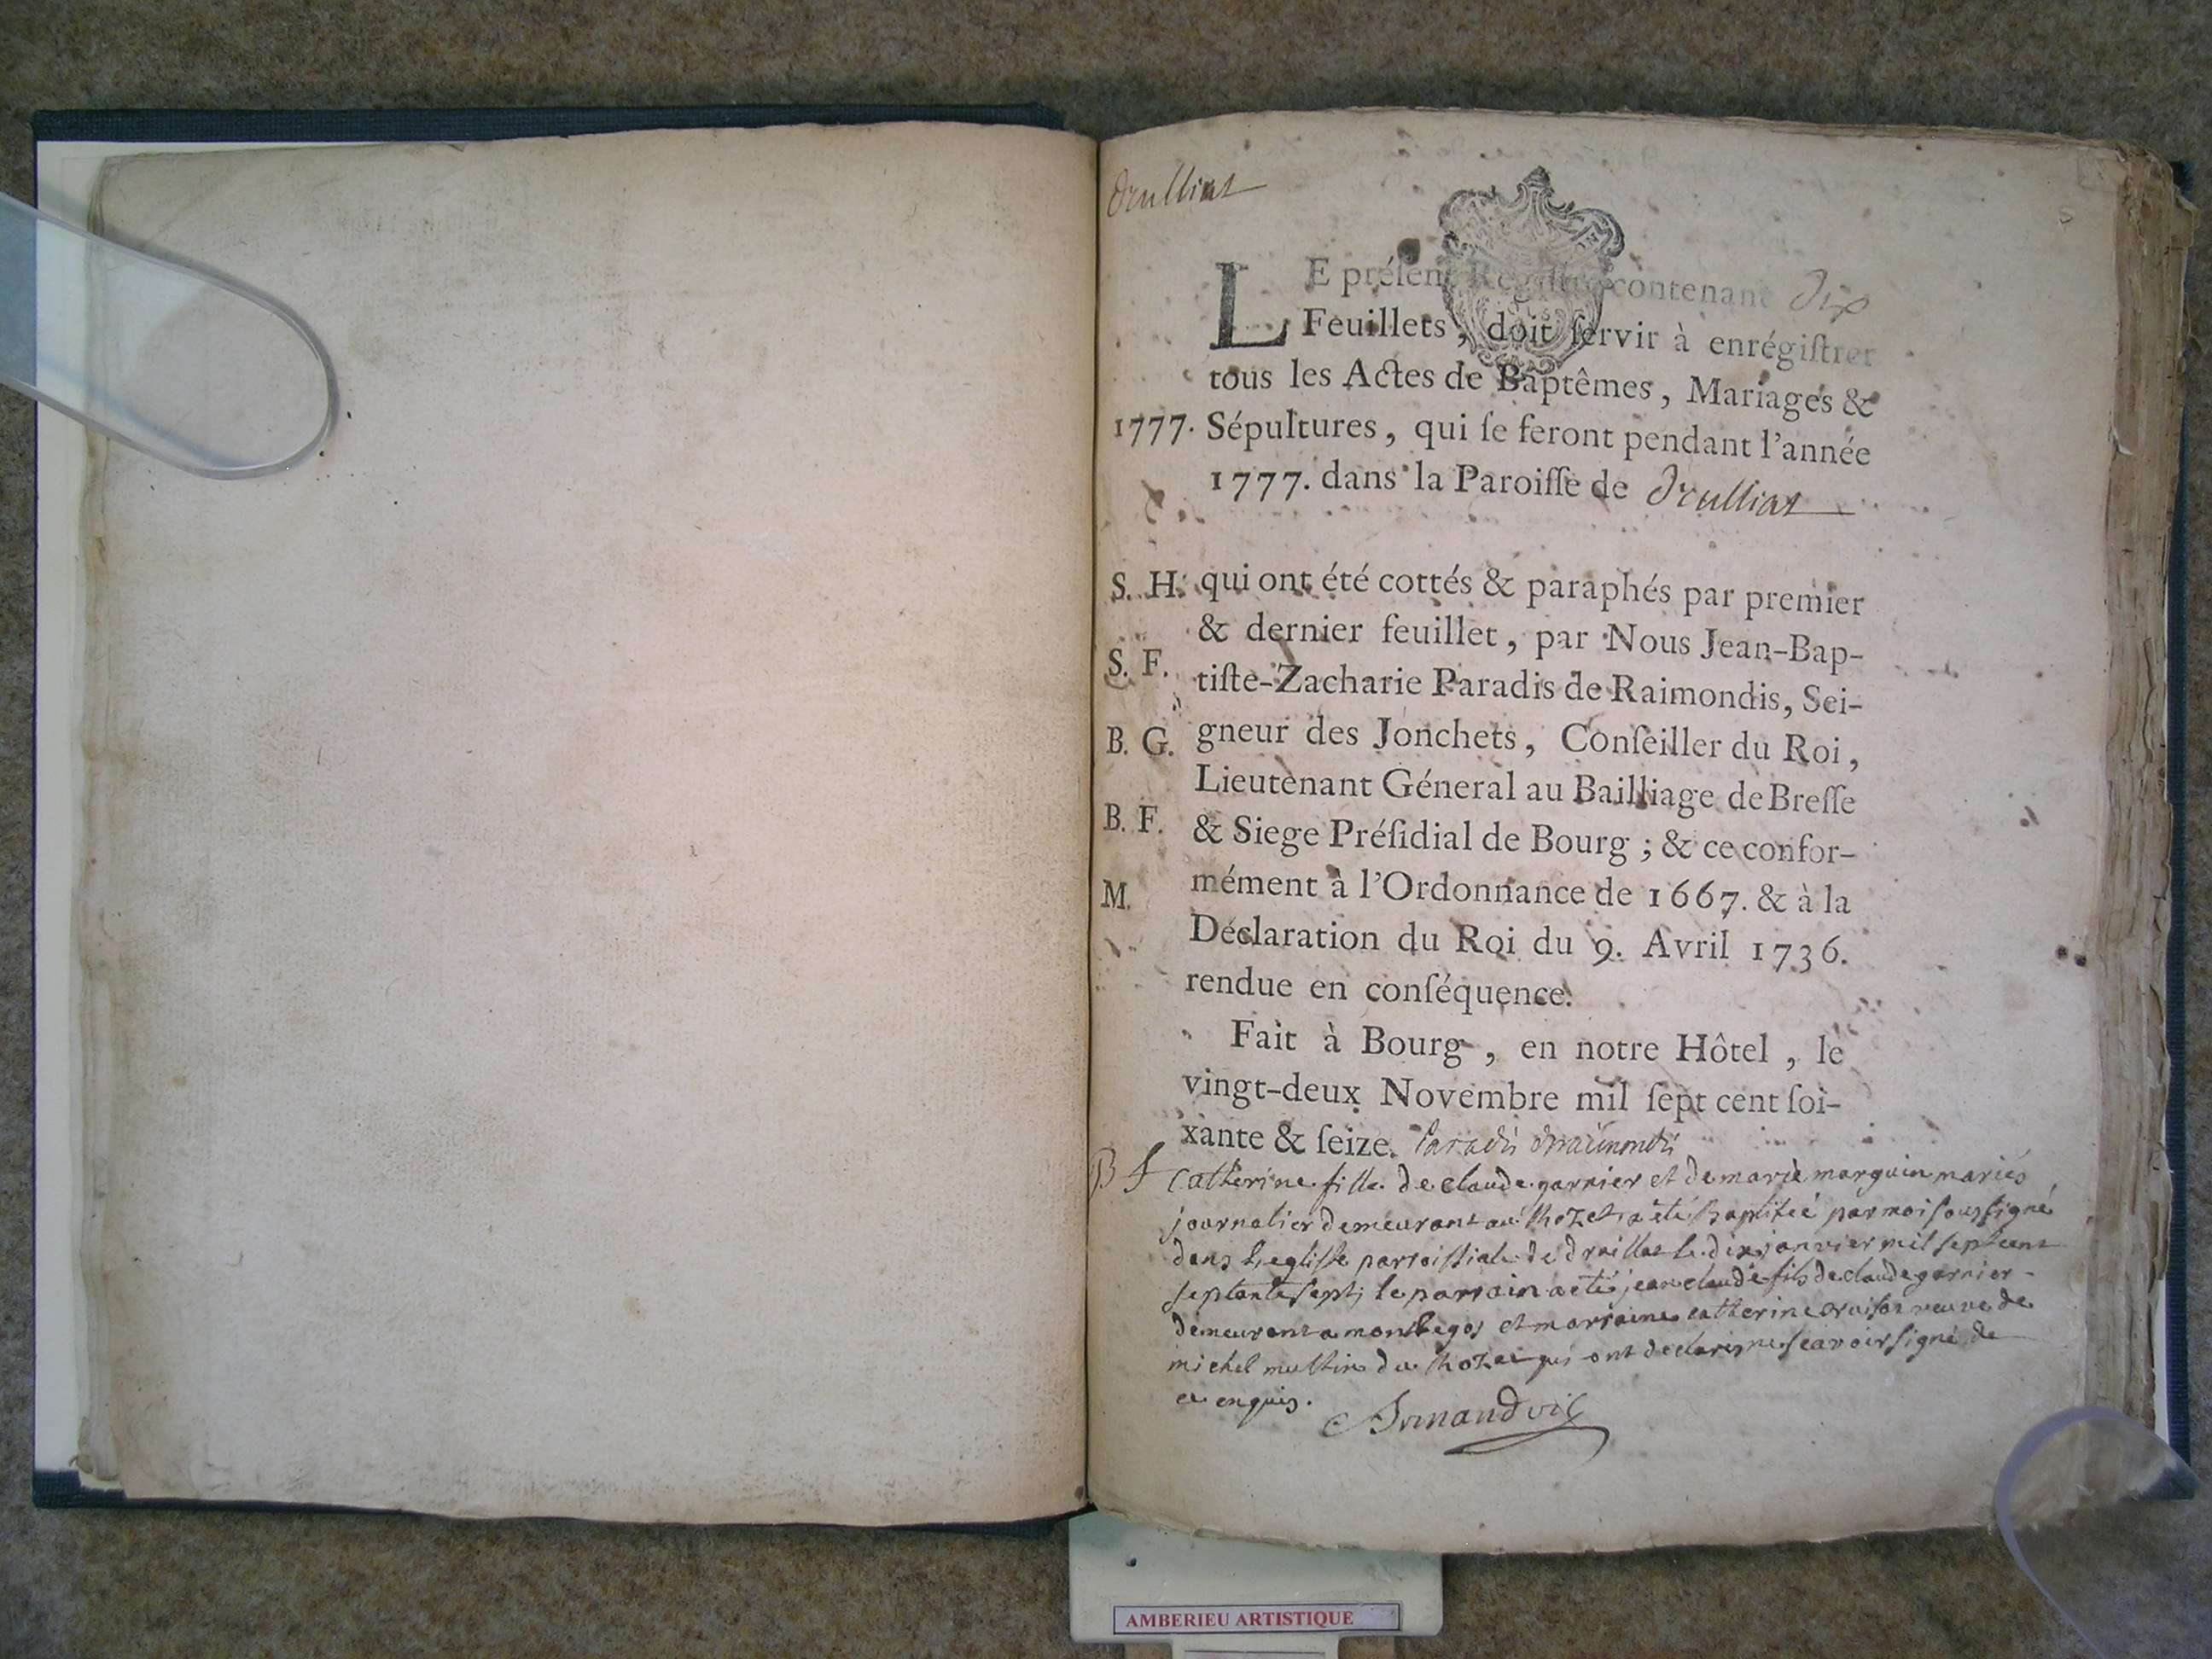 Drulliat
LE préſent Regiſtre contenant Dix
Feuillets, doit ſervir à enrégiſtrer
tous les Actes de Baptêmes, Mariages &
1777. Sépultures, qui ſe feront pendant l'année
1777. dans la Paroiſſe de Drulliat
S. H. qui ont été cottés & paraphés par premier
& dernier feuillet, par Nous Jean-Bap-
S. F. tiſte-Zacharie Paradis de Raimondis, Sei-
B. G. gneur des Jonchets, Conſeiller du Roi,
Lieutenant Géneral au Bailliage de Breſſe
B. F. & Siege Préſidial de Bourg ; & ce confor-
M. mément à l'Ordonnance de 1667. & à la
Déclaration du Roi du 9. Avril 1736.
rendue en conſéquence.
Fait à Bourg, en notre Hôtel, le
vingt-deux Novembre mil ſept cent ſoi-
xante & ſeize. Paradis Draimondis
B f Catherine fille de claude garnier et de marie marguin mariés
journalier demeurant au a été Baptisée par moi soussigné
dans L'eglisse parroissiale de druillat le dix janvier mil septcent
septante sept; le parrain a été jean claude fils de claude garnier
demeurant a et marraine catherine veuve de
michel du qui ont declaré ne scavoir signé de
ce enquis.